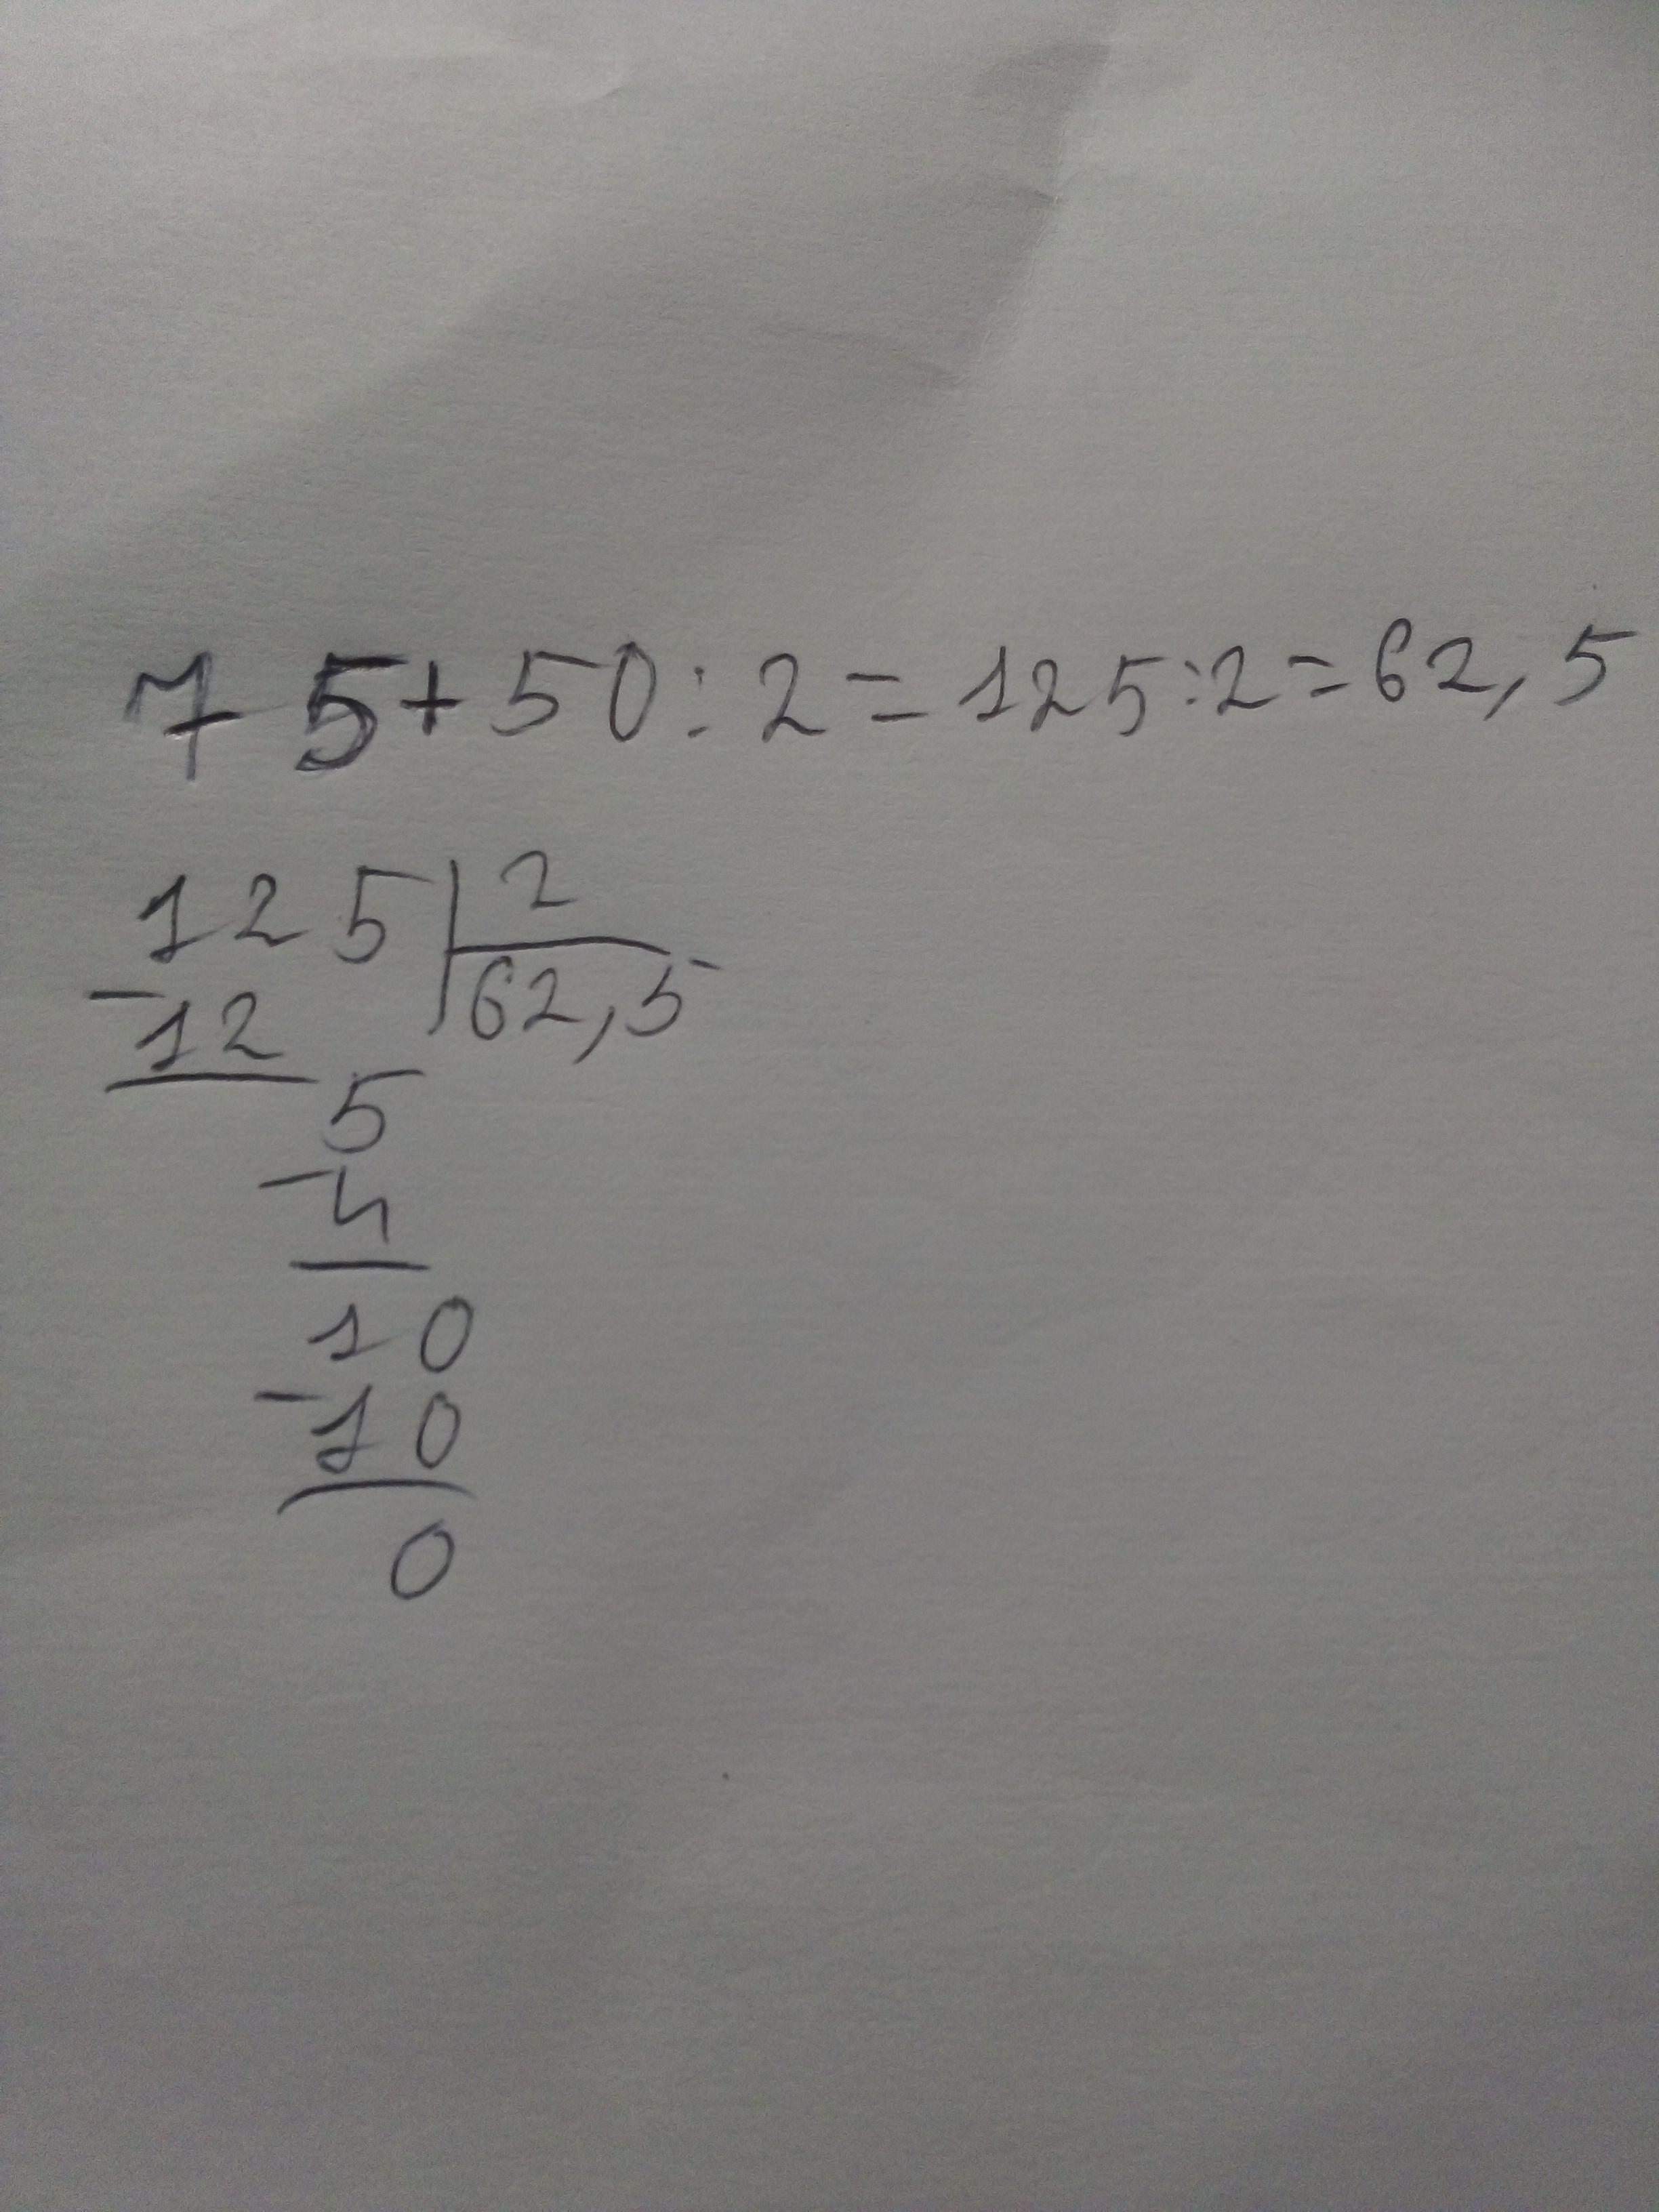 75+50:2=125:2=62,5
125 2
-12 62,5
5
-4
10
-10
0